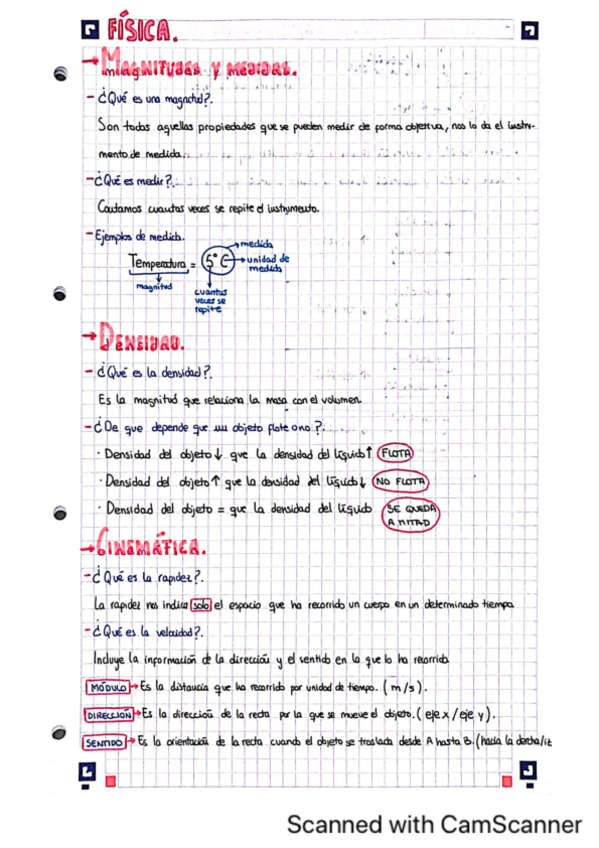 FÍSICA.
→ MAGNITUDES Y MEDIDAS.
- ¿Qué es una magnitud?.
Son todas aquellas propiedades que se pueden medir de forma objetiva, nos lo da el instru-
mento de medida.
- ¿Qué es medir?.
Contamos cuantas veces se repite el instrumento.
- Ejemplos de medida.
Temperatura = 5° C
medida
unidad de
medida
magnitud
cuantas
veces se
repite
→ DENSIDAD.
- ¿Qué es la densidad?.
Es la magnitud que relaciona la masa con el volumen.
- ¿De que depende que un objeto flote o no?.
· Densidad del objeto ↓ que la densidad del líquido ↑ FLOTA
· Densidad del objeto ↑ que la densidad del líquido ↓ NO FLOTA
· Densidad del objeto = que la densidad del líquido SE QUEDA
A MITAD
→ CINEMÁTICA.
- ¿Qué es la rapidez?.
La rapidez nos indica solo el espacio que ha recorrido un cuerpo en un determinado tiempo
- ¿Qué es la velocidad?.
Incluye la información de la dirección y el sentido en la que lo ha recorrido
MÓDULO → Es la distancia que ha recorrido por unidad de tiempo. (m/s).
DIRECCIÓN → Es la dirección de la recta por la que se mueve el objeto. (eje x / eje y).
SENTIDO → Es la orientación de la recta cuando el objeto se traslada desde A hasta B. (hacia la derecha/iz
Scanned with CamScanner